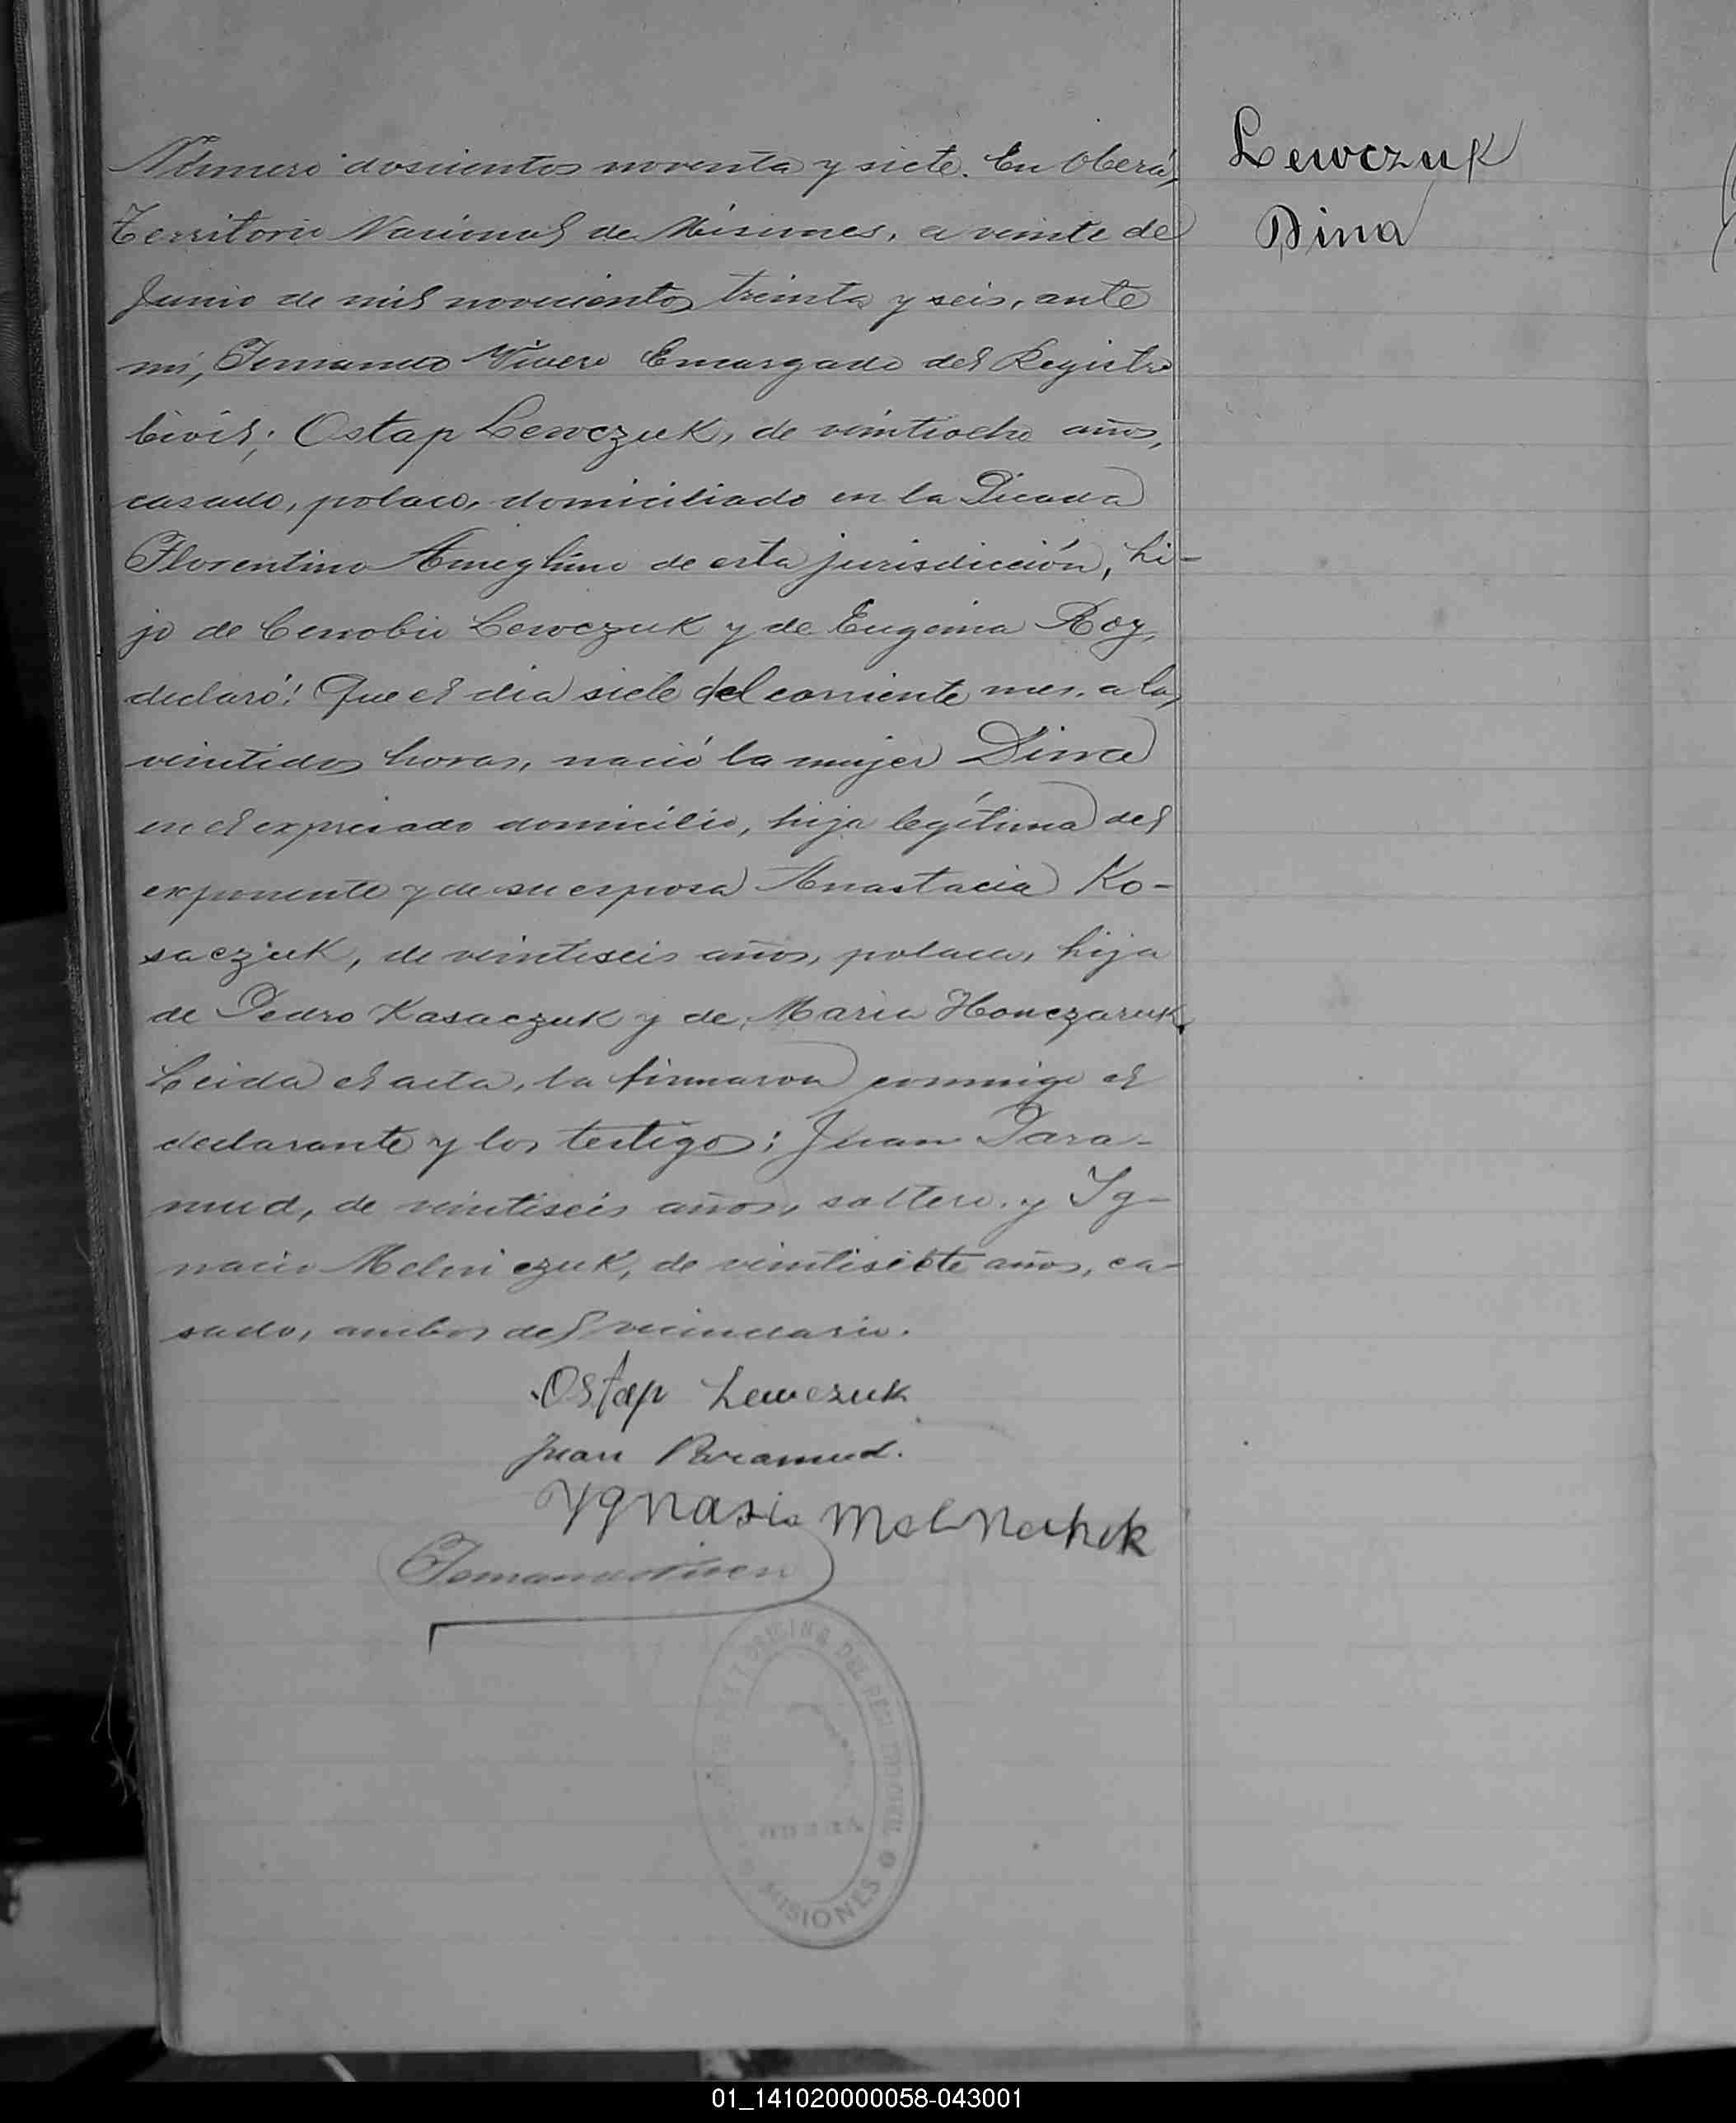 Número doscientos noventa y siete. En Oberá,
Territorio Nacional de Misiones, a veinte de
Junio de mil novecientos treinta y seis, ante
mí, Fernando Vivero Encargado del Registro
Civil; Ostap Lewczuk, de veintiocho años,
casado, polaco, domiciliado en la Picada
Florentino Ameghino de esta jurisdicción, hi-
jo de Cenobio Lewczuk y de Eugenia Roy,
declaró: Que el día siete del corriente mes, a las
veintidos horas, nació la mujer Dina
en el expresado domicilio, hija legítima del
exponente y de su esposa Anastacia Ko-
saczuk, de veintiseis años, polaca, hija
de Pedro Kasaczuk y de María Honczaruk.
Leida el acta, la firmaron conmigo el
declarante y los testigos: Juan Para-
mud, de veintiseis años, soltero, y Yg-
nacio Melniczuk, de veintisiete años, ca-
sado, ambos del vecindario.
Ostap Lewczuk
Juan Paramud.
Ygnasio Melnechuk
Lewczuk
Dina
OFICINA DEL REGISTRO CIVIL
MISIONES
01_141020000058-043001